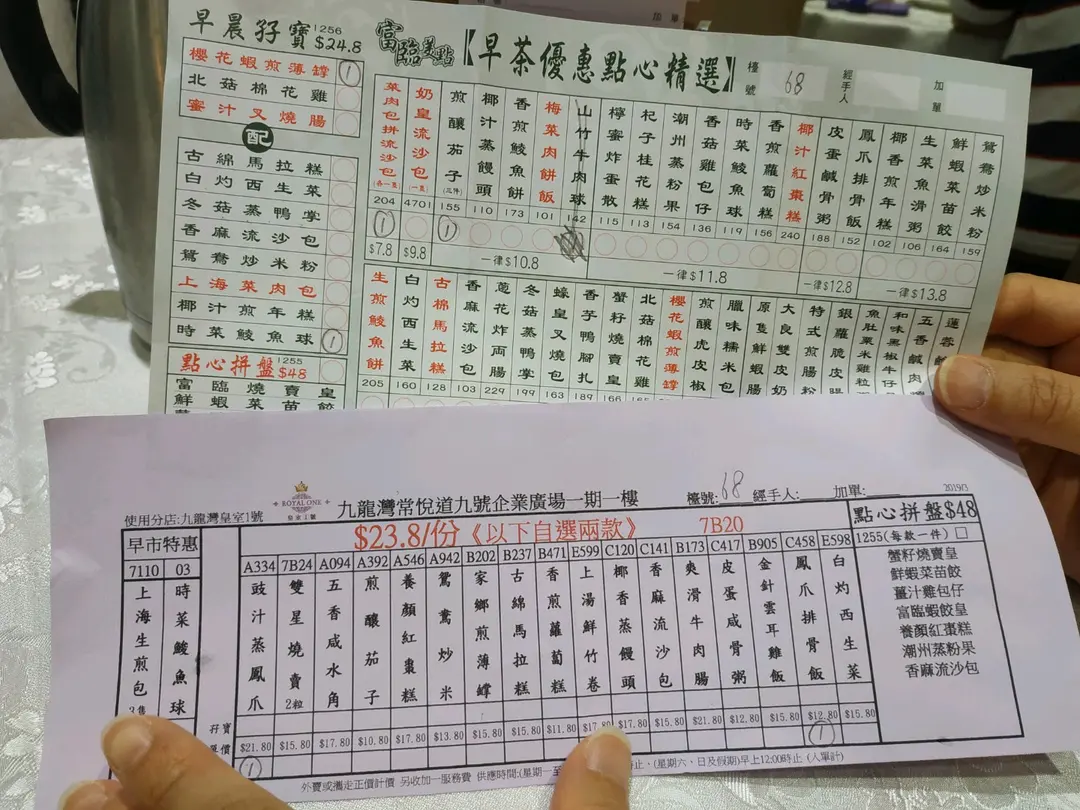 早晨孖寶 1256 $24.8
櫻花蝦煎薄罉 1
北菇棉花雞
蜜汁叉燒腸
配
古綿馬拉糕
白灼西生菜
冬菇蒸鴨掌
香麻流沙包
鴛鴦炒米粉
上海菜肉包
椰汁煎年糕
時菜鯪魚球 1
點心拼盤 1255 $48
富臨燒賣皇
鮮蝦菜苗餃
富臨美點【早茶優惠點心精選】
檯號 68 經手人 加單
菜肉包拼流沙包(各一隻) 204 1 $7.8
奶皇流沙包(一隻) 4701 $9.8
煎釀茄子(三件) 155 1
椰汁蒸饅頭 110
香煎鯪魚餅 173
梅菜肉餅飯 101
山竹牛肉球 142
一律$10.8
檸蜜炸蛋散 115
杞子桂花糕 113
潮州蒸粉果 154
香菇雞包仔 136
時菜鯪魚球 119
香煎蘿蔔糕 156
椰汁紅棗糕 240
一律$11.8
皮蛋鹹骨粥 188
鳳爪排骨飯 152
一律$12.8
椰香煎年糕 102
生菜魚滑粥 106
鮮蝦菜苗餃 164
鴛鴦炒米粉 159
一律$13.8
生煎鯪魚餅 205
白灼西生菜 160
古綿馬拉糕 128
香麻流沙包 103
蔥花炸両腸 229
冬菇蒸鴨掌 199
蠔皇叉燒包 163
香芋鴨腳扎 189
蟹籽燒賣皇 166
北菇棉花雞
櫻花蝦煎薄罉
煎釀虎皮椒
臘味糯米包
原隻鮮蝦腸
大良雙皮奶
特式煎腸粉
銀蘿脆皮
魚肚粟米雞粒
和味黑椒牛仔
五香鹹
蓮蓉
ROYAL ONE
皇室1號
使用分店:九龍灣皇室1號
九龍灣常悅道九號企業廣場一期一樓
檯號:68 經手人: 加單:
2019/3
早市特惠
7110 上海生煎包 3隻
03 時菜鯪魚球
$23.8/份《以下自選兩款》 7B20
A334 豉汁蒸鳳爪 $21.80 1
7B24 雙星燒賣 2粒 $15.80
A094 五香咸水角 $17.80
A392 煎釀茄子 $10.80
A546 養顏紅棗糕 $17.80
A942 鴛鴦炒米 $13.80
B202 家鄉煎薄罉 $15.80
B237 古綿馬拉糕 $15.80
B471 香煎蘿蔔糕 $11.80
E599 上湯鮮竹卷 $17.80
C120 椰香蒸饅頭 $17.80
C141 香麻流沙包 $15.80
B173 爽滑牛肉腸 $21.80
C417 皮蛋咸骨粥 $12.80
B905 金針雲耳雞飯 $15.80
C458 鳳爪排骨飯 $12.80 1
E598 白灼西生菜 $15.80
孖寶
點心拼盤$48
1255(每款一件)
蟹籽燒賣皇
鮮蝦菜苗餃
薑汁雞包仔
富臨蝦餃皇
養顏紅棗糕
潮州蒸粉果
香麻流沙包
外賣或攜走正價計價 另收加一服務費 供應時間:(星期一至
止,(星期六,日及假期)早上12:00時止 (入單計)